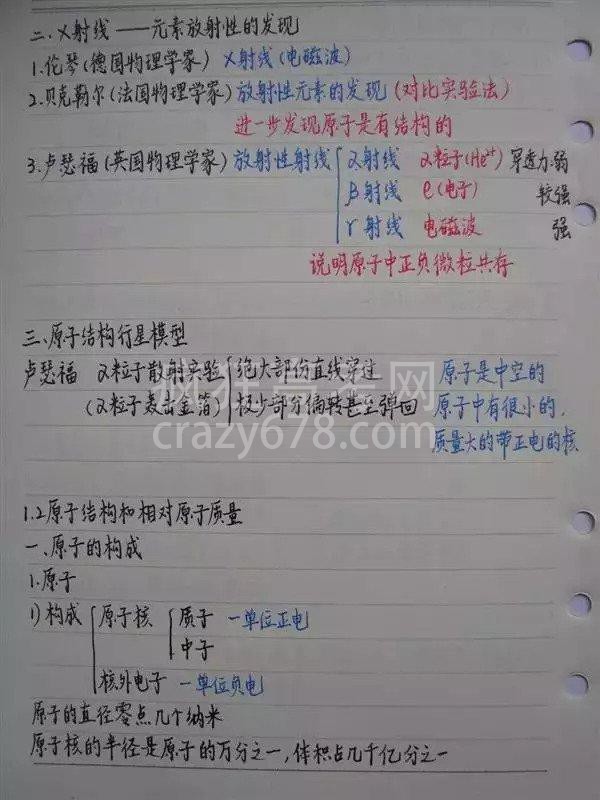 二.X射线——元素放射性的发现
1.伦琴(德国物理学家) X射线(电磁波)
2.贝克勒尔(法国物理学家)放射性元素的发现(对比实验法)
进一步发现原子是有结构的
3.卢瑟福(英国物理学家)放射性射线 α射线 α粒子(He²⁺) 穿透力:弱
β射线 e(电子) 较强
γ射线 电磁波 强
说明原子中正负微粒共存
三.原子结构行星模型
卢瑟福 α粒子散射实验 绝大部份直线穿过 原子是中空的
(α粒子轰击金箔) 极少部分偏转甚至弹回 原子中有很小的,
质量大的带正电的核
疯狂高考网
crazy678.com
1.2原子结构和相对原子质量
一.原子的构成
1.原子
1)构成 原子核 质子 一单位正电
中子
核外电子 一单位负电
原子的直径零点几个纳米
原子核的半径是原子的万分之一,体积占几千亿分之一